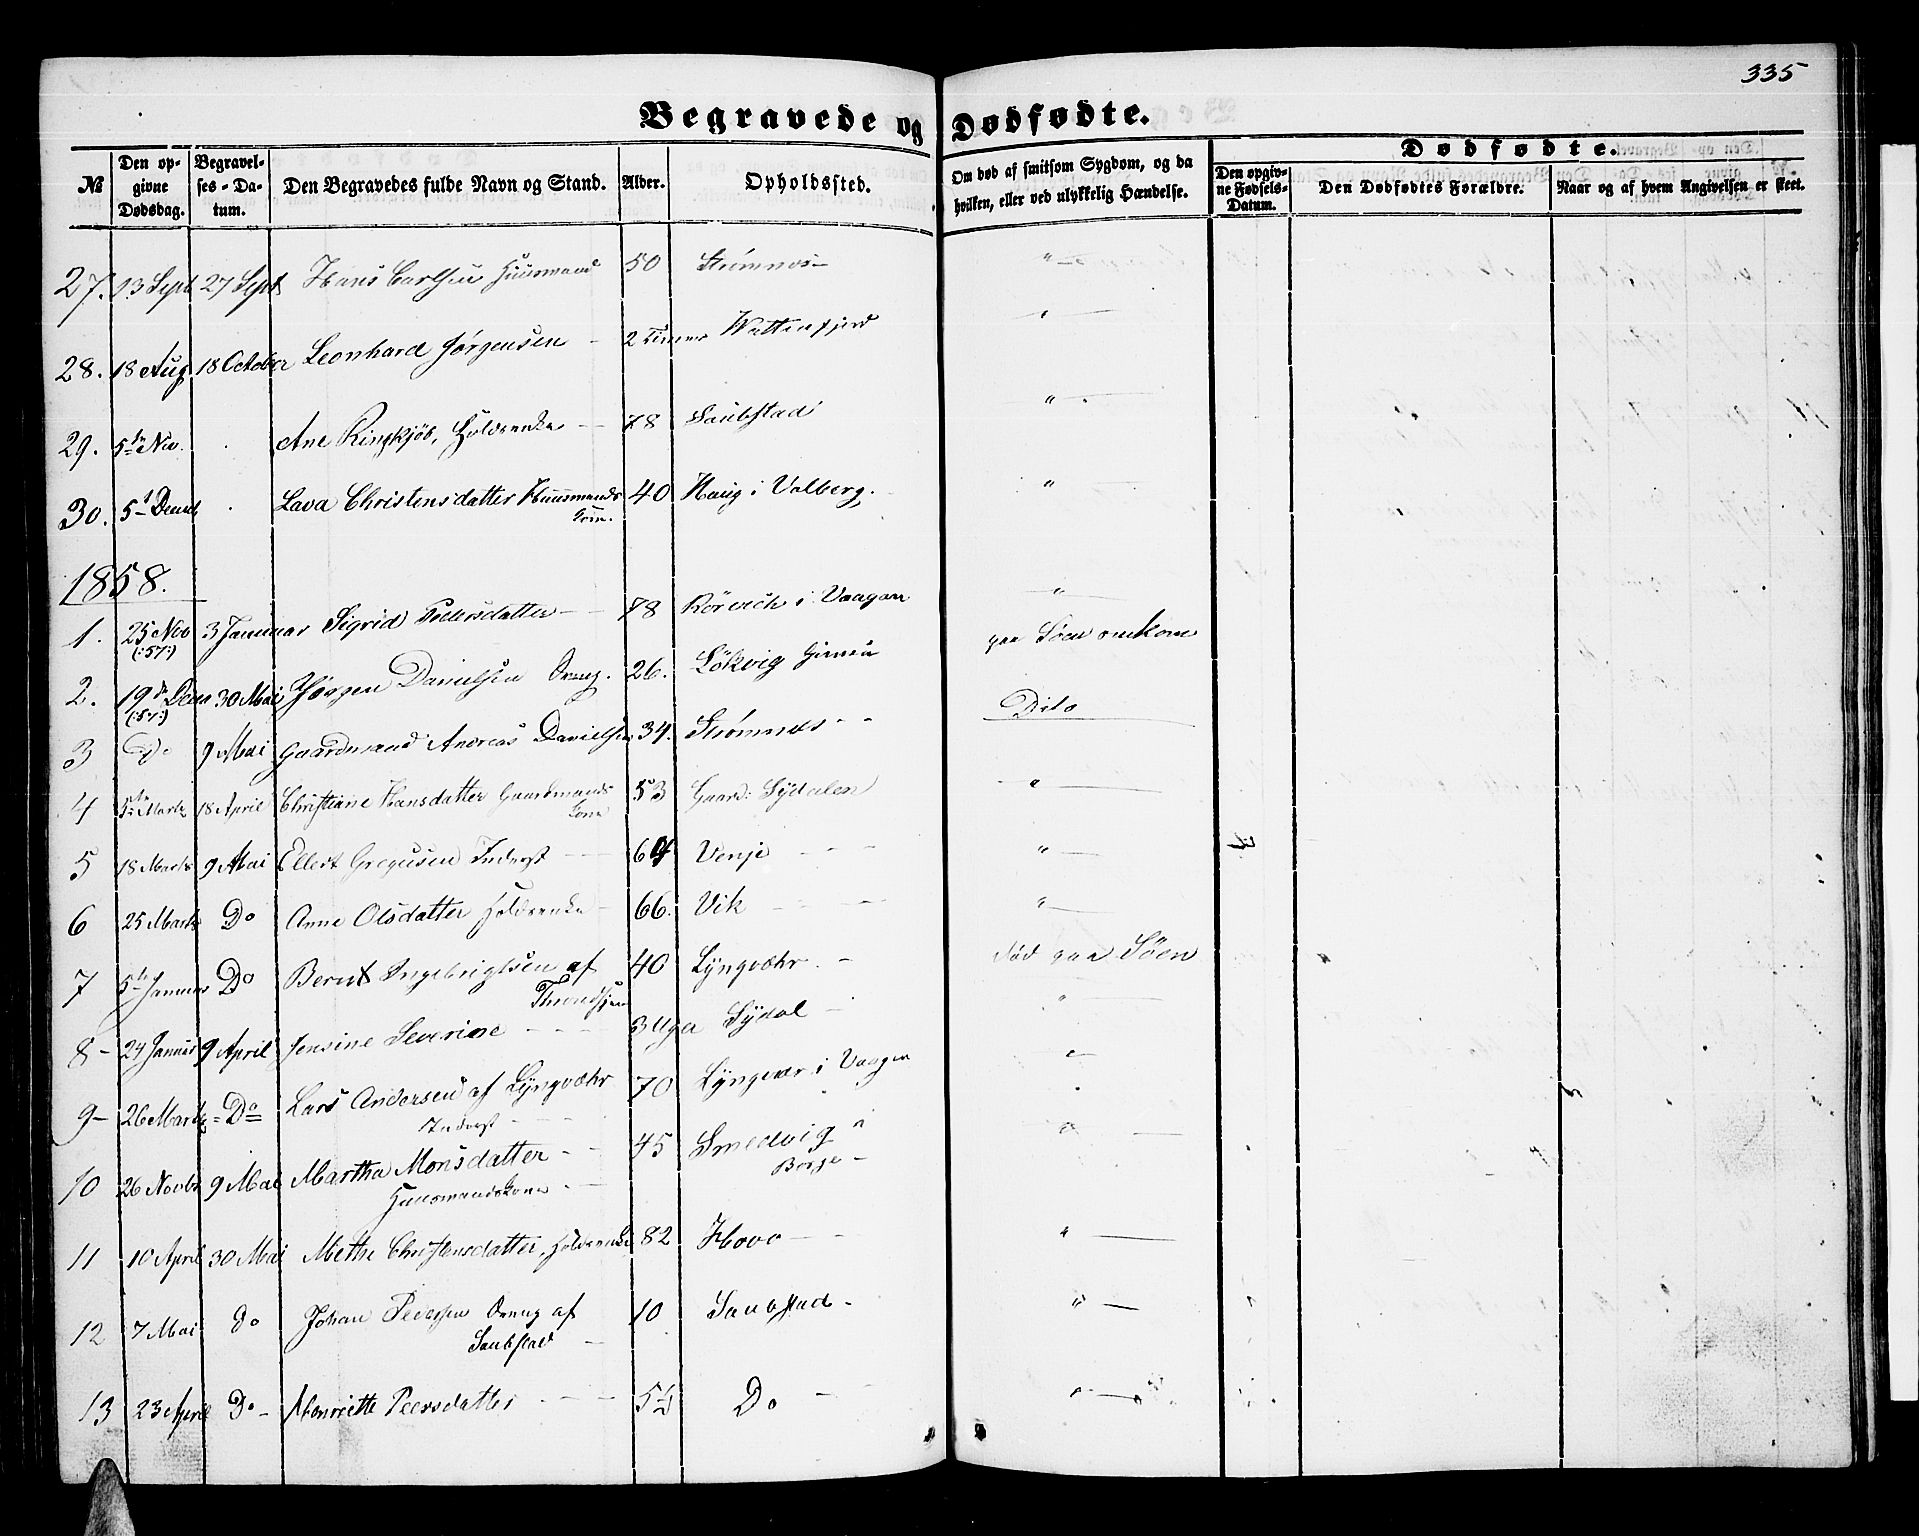 335
Begravede og Dødfødte.
№ Den opgivne Dødsdag. Begravelses-Datum. Den Begravedes fulde Navn og Stand. Alder. Opholdssted. Om død af smitsom Sygdom, og da hvilken, eller ved ulykkelig Hændelse. Dødfødte. Den opgivne Fødsels-Datum. Den Dødfødtes Forældre. Naar og af hvem Angivelsen er skeet.
27. 13 Sept 27 Sept Hans Carlsen Huusmand 50 Strømnæs - " -
28. 18 Aug 18 October Leonhard Jørgensen - 2 Timer "
29. 5te Nov. Ane Ringkjøb, Holdsenke - 78 Saubstad "
30. 5te Decemb Lava Christensdatter Huusmands 40 Haug i Valberg. "
Kone.
1858.
1. 25 Nov 3 Januar Sigrid Pedersdatter - - 78 Rörvich i Vaagan "
(:57:)
2. 19de Decm 30 Mai Jørgen Danielsen Dreng. 26. Lökvig Gimsö paa Söen omkom
(:57:)
3 Do 9 Mai Gaardmand Andreas Danielsen 34. Strømnæs - - Dito
4 5te Marts 18 April Christiane Hansdatter Gaardmands 53 Gaard: Sÿdalen "
Kone
5 18 Marts 9 Mai Ellert Gregusen Inderst - - Venje - - - "
6 25 Marts Do Anne Olsdatter Holdsenke - 66. Vik - - - "
7 5te Januar Do Bernt Ingebrigtsen af 40 Lÿngvæhr. - död paa Söen
8 - 24 Januar 9 April Jensine Severine - - - 3 Uga Sÿdal - "
9 - 26 Marts = Do = Lars Andersen af Lÿngvæhr 70 Lÿngvær i Vaagen "
Inderst - - -
10 26 Novbr 9 Mai Martha Monsdatter - - 45 Smedvig " "
Huusmandskone - - Borge -
11 10 April 30 Mai Methe Christensdatter, Holdsenke 82 Hovo - - "
12 7 Mai Do Johan Pedersen Dreng af 10 Saubstad - " -
Saubstad -
13 23 April Do - Henriette Peersdatter - - - 5½ Do - - " -